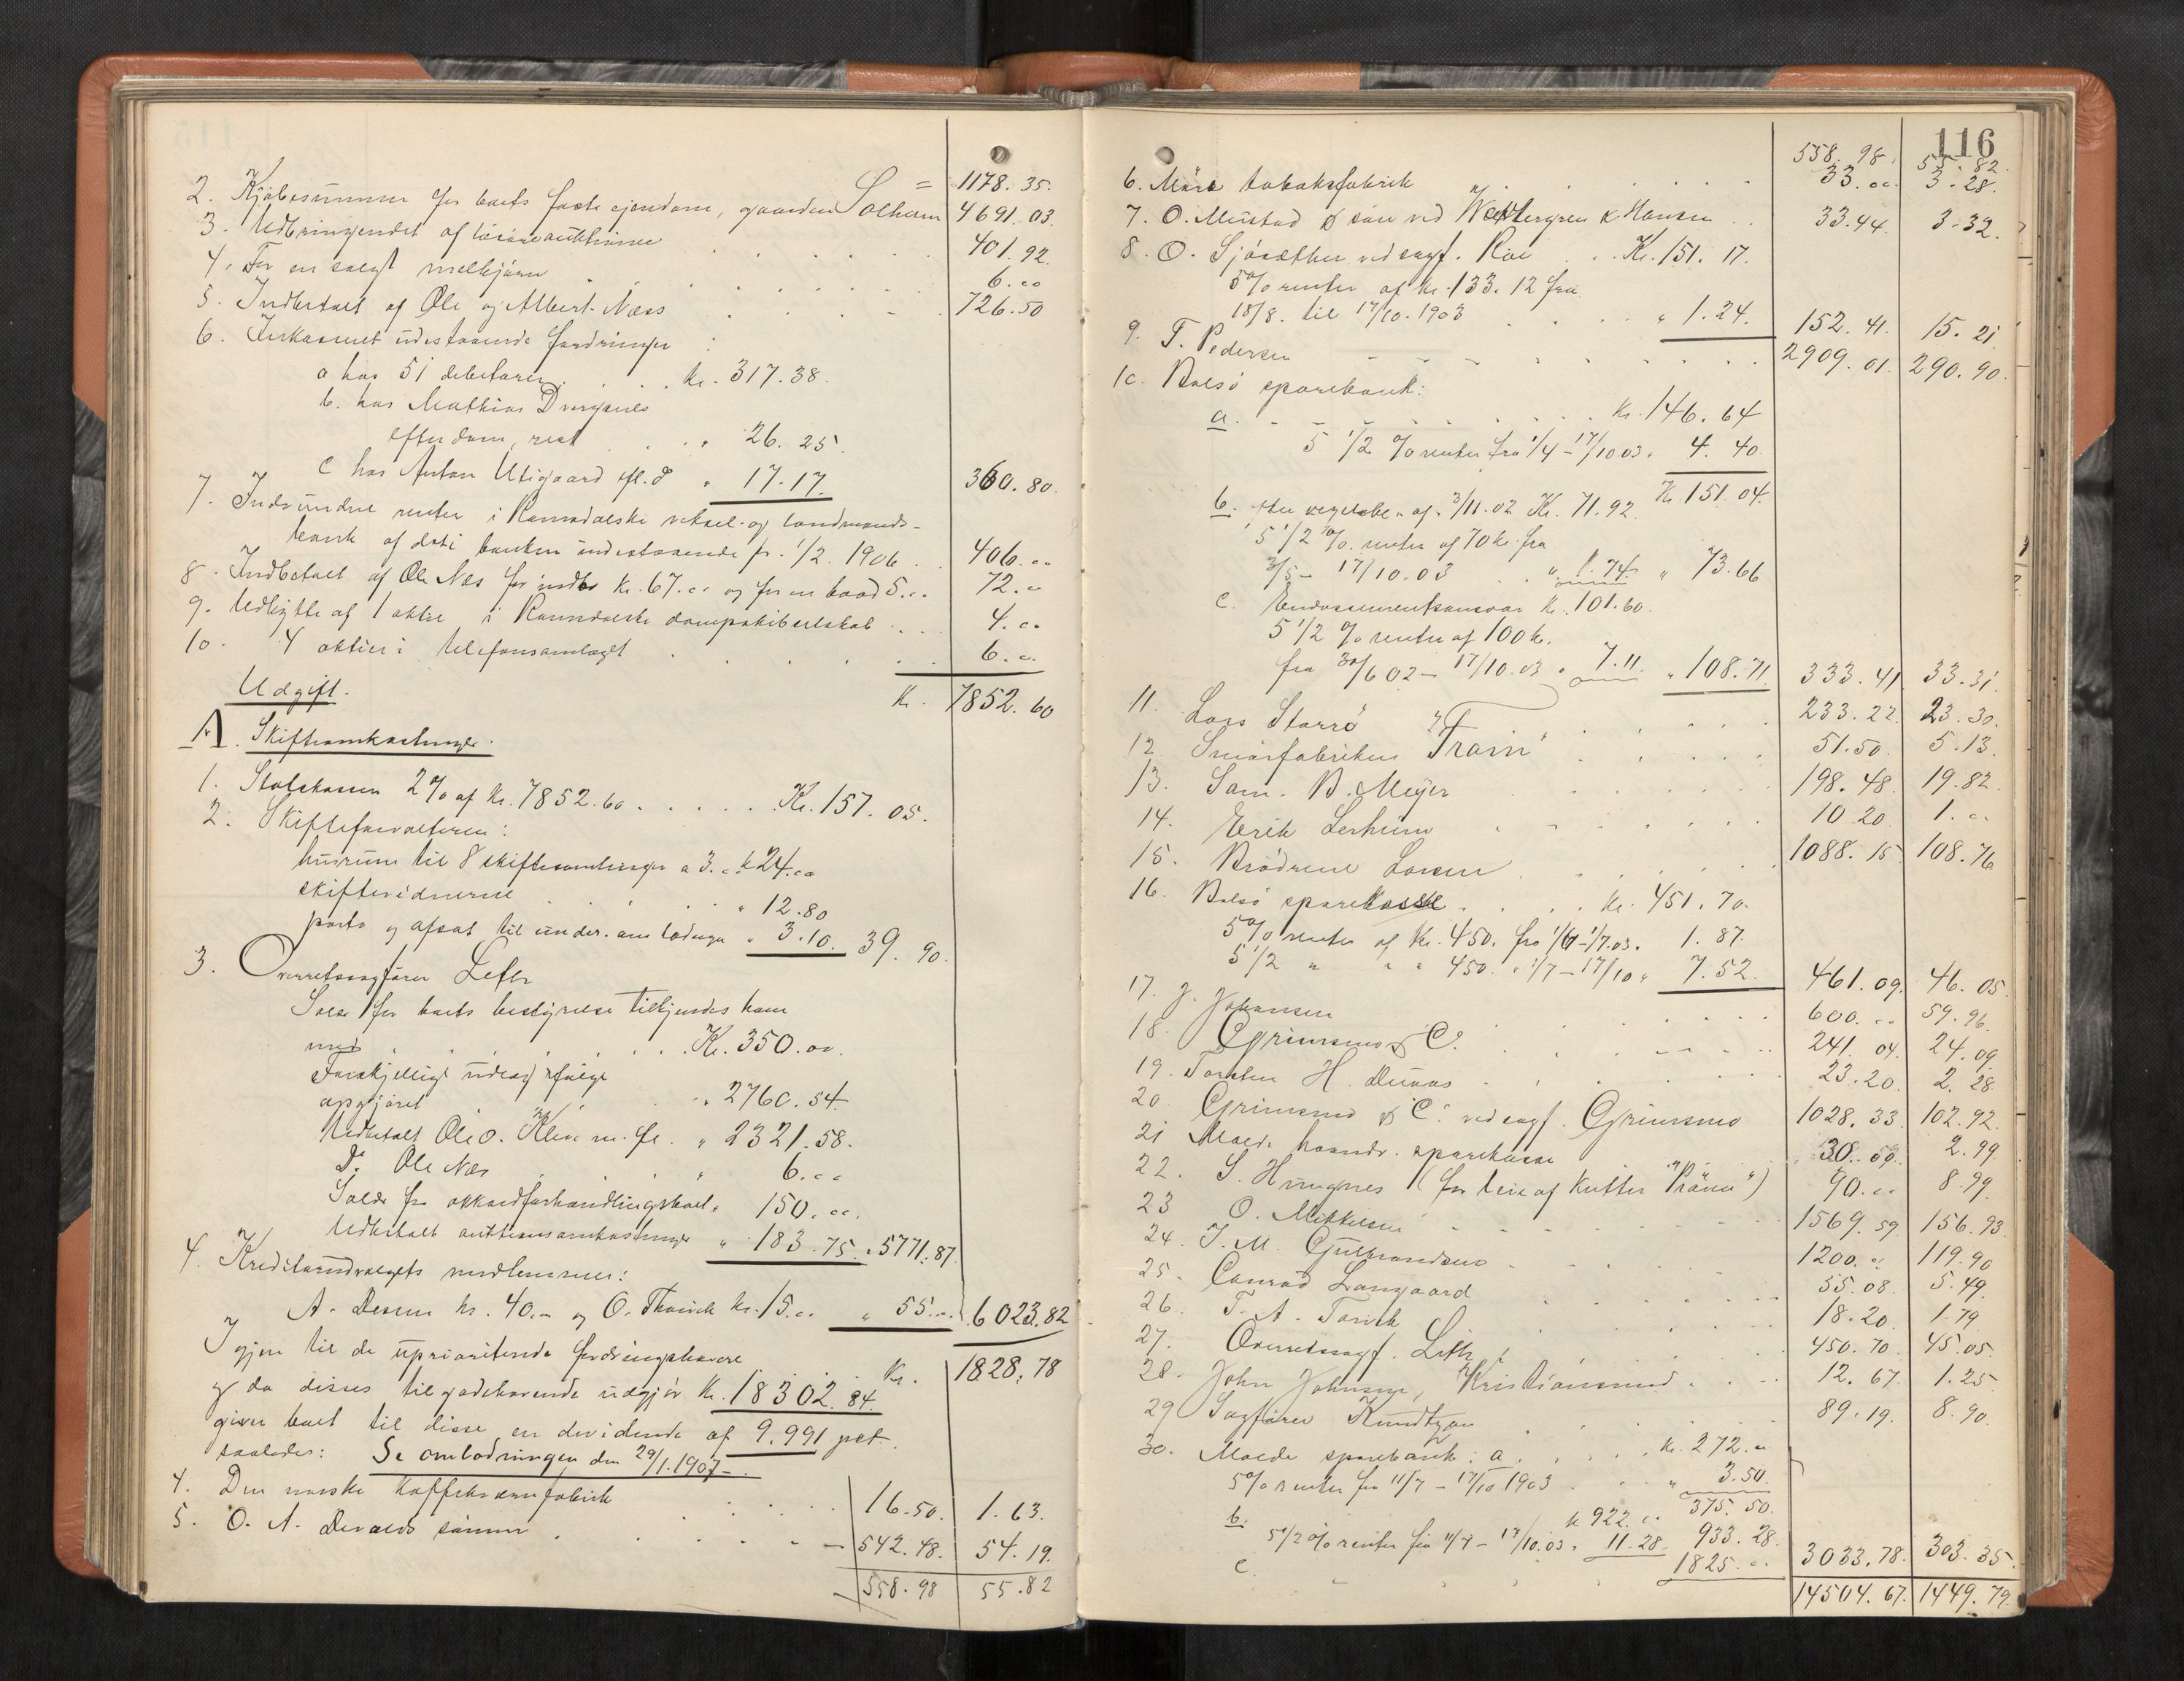 = 1178. 35.
2. Kjöbesummen for boets faste ejendom, gaarden Solheim 4691. 03.
3. Udbringendet af lösöreauktionen . . . . 401. 92.
4. For en solgt melkjörn . . . . 6. 00
5. Indbetalt af Ole og Albert Næss . . . . 726. 50
6. Inkasseret udestaaende fordringer :
a hos 51 debitorer . . . . kr. 317. 38.
b. hos Mathias Dverganes
efter dom, rest . . " 26. 25.
c hos Anton Utigaard " 17. 17. 360. 80.
7. Indvundne renter i Romsdalske veksel- og landmands-
bank af det i banken indestaaende pr. 1/2. 1906 . . 406. 00
8. Indbetalt af Ole Næs for indbo kr. 67. 00 og for en baad 5. 00 72. 00
9. Udbytte af 1 aktie i Romsdalske dampskibselskab . . . 4. 00
10. 4 aktier i telefonsamlaget . . . . 6. 00
Kr. 7852. 60
Udgift.
A. Skifteomkostninger.
1. Statskassen 2 % af kr. 7852. 60 . . . . . Kr. 157. 05.
2. Skifteforvalteren :
husrum til 8 skiftesamlinger a 3. 00 k 24. 00
skiftevidnerne . . . " 12. 80
porto og afsat til under. om lodningen " 3. 10. 39. 90.
3. Overretssagförer Leth
Salær for boets bestyrelse tilkjendes ham
med . . . . . Kr. 350. 00.
Forskjellige udlæg ifölge
opgjöret . . " 2760. 54.
Udbetalt Ole O. Klive m. fl. " 2321. 58.
Do Ole Næs . . " 6. 00
Salær for akkordforhandlingsboet " 150. 00.
Udbetalt auktionsomkostninger " 183. 75. " 5771. 87
4. Kreditorudvalgets medlemmer :
A. Dessen kr. 40. - og O. Thorvik kr. 15. 00 " 55. 00. 6023. 82
Igjen til de uprioriterede fordringshavere . . . Kr. 1828. 78
og da disses tilgodehavende udgjör kr. 18302. 84.
giver boet til disse en dividende af 9. 991 pct.
saaledes : Se omlodningen den 29/1. 1907 -
4. Den norske Kaffe fabrik . . . . 16. 50. 1. 63.
5. O. A. Devolds sönner . . . . 542. 48. 54. 19.
558. 98 55. 82
116
558. 98. 55. 82.
6. Möre tobaksfabrik . . . . 33. 00. 3. 28.
7. O. Mustad & sön ved Westergren & Hansen . . 33. 44. 3. 32.
8. O. Sjösæther ved sagf. Roe . . Kr. 151. 17.
5 % renter af kr. 133. 12 fra
18/8. til 17/10. 1903 . . . . " 1. 24. 152. 41. 15. 21
9. T. Pedersen . . . . 2909. 01. 290. 90.
10. Bolsö sparebank :
a. . . . . Kr. 146. 64
5 1/2 % renter fra 1/4 - 17/10 03 " 4. 40.
Kr. 151. 04.
b. efter af 3/11. 02 Kr. 71. 92.
5 1/2 %. renter af 70 kr. fra
3/5 - 17/10. 03 . . " 1. 74. " 73. 66
c. Endossementsansvar Kr. 101. 60.
5 1/2 % renter af 100 kr.
fra 30/6 02 - 17/10. 03 " 7. 11. " 108. 71. 333. 41 33. 31.
11. Lars Storrö . . . . 233. 22. 23. 30.
12. Smörfabriken "Fram" . . . . 51. 50. 5. 13.
13. Sam. B. Meyer . . . . 198. 48. 19. 82.
14. Erik Lerheim . . . . 10 20. 1. 00
15. Brödrene Larsen . . . . 1088. 15 108. 76
16. Bolsö sparekasse . . . . kr. 451. 70.
5 % renter af kr. 450. fra 1/6 - 1/7. 03. " 1. 87.
5 1/2 " " " 450. " 1/7 - 17/10 " 7. 52. 461. 09. 46. 05
17. J. Johansen . . . . 600. 00 59. 96.
18. Grimsmo & Co. . . . . 241. 04. 24. 09.
19. Torsten H. Dunaas . . . . 23. 20. 2. 28.
20. Grimsmo & Co. ved sagf. Grimsmo 1028. 33. 102. 92.
21 Molde haandv. sparekasse 30. 50. 2. 99.
22. S. Hungnes (for leie af kutter "Pröven") 90. 00 8. 99
23 O. Mikkelsen . . . . 1569. 59 156. 93
24. J. M. Gulbrandsen . . . . 1200. 00 119. 90
25. Conrad Langaard . . . . 55. 08. 5. 49.
26. T. A. Torvik . . . . 18. 20. 1. 79
27. Overretssagf. Leth . . . . 450. 70. 45. 05.
28. John Johnsen, Kristiansund . . . . 12. 67. 1. 25
29 Sagförer Knudtzon . . . . 89. 19. 8. 90.
30. Molde sparebank : a . . . . kr. 272. 00
5 % renter fra 11/7 - 17/10 1903 . . . " 3. 50.
375. 50.
b. k 922. 00
5 1/2 % renter fra 11/7 - 17/10. 03 " 11. 28. 933. 28.
c . . . . 1825. 00 3033. 78. 303. 35.
14504. 67. 1449. 79.